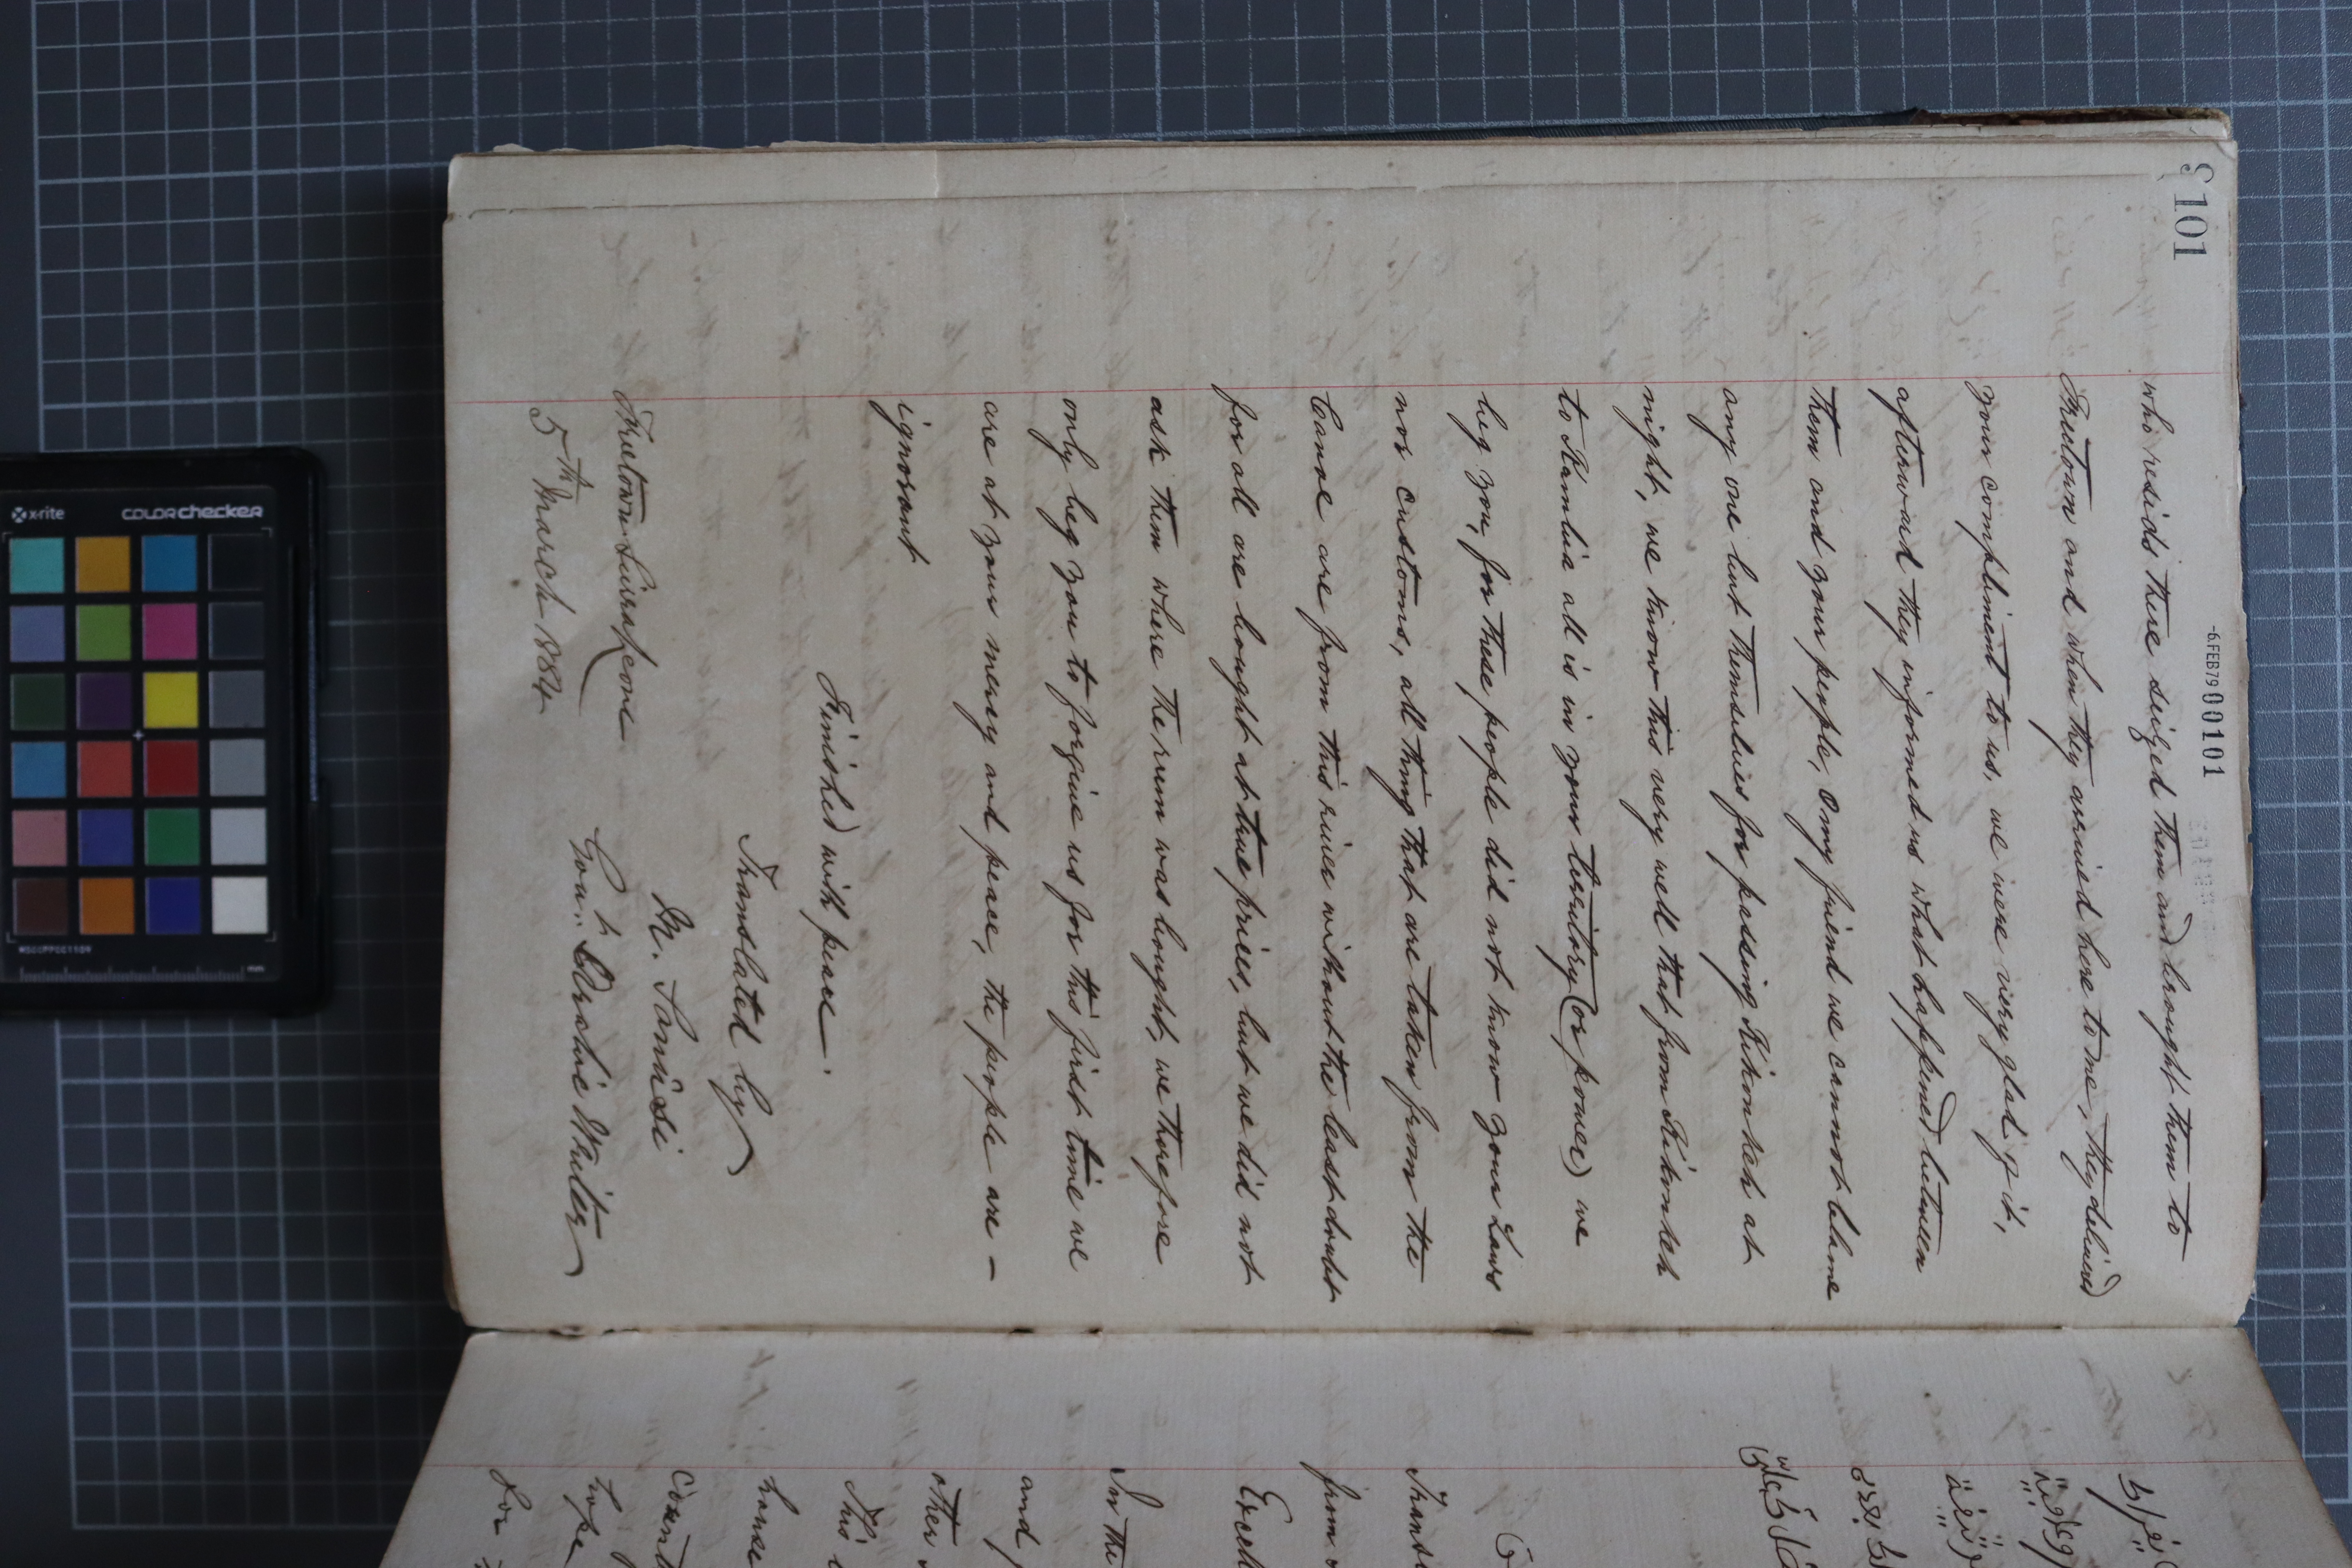 101
-6.FEB79 00101
who resids there seized them and brought them to
Freetown and when they arrived here to me, they deliver'd
your compliment to us, we were very glad of it,
afterward they informed us what happened between
them and your people, O my friend we cannot blame
any one but themselves for passing Kikonkeh at
night, we know this very well that from Kikonkeh
to Kambia all is in your territory (or power) we
beg you, for these people did not know your Laws
nor customs, all thing that are taken from the
Canoe are from this river without the least doubt
for all are bought at true prices, but we did not
ask them where the rum was bought, we therefore
only beg you to forgive us for this first time we
are at your mercy and peace, the people are -
ignorant
Finished with peace.
Translated by
M. Sanusi
Govt. Arabic Writer
Freetown Sierra Leone
5th March 1884
from
In the
and
other
This
house
hope
for
x-rite
colorchecker
mm